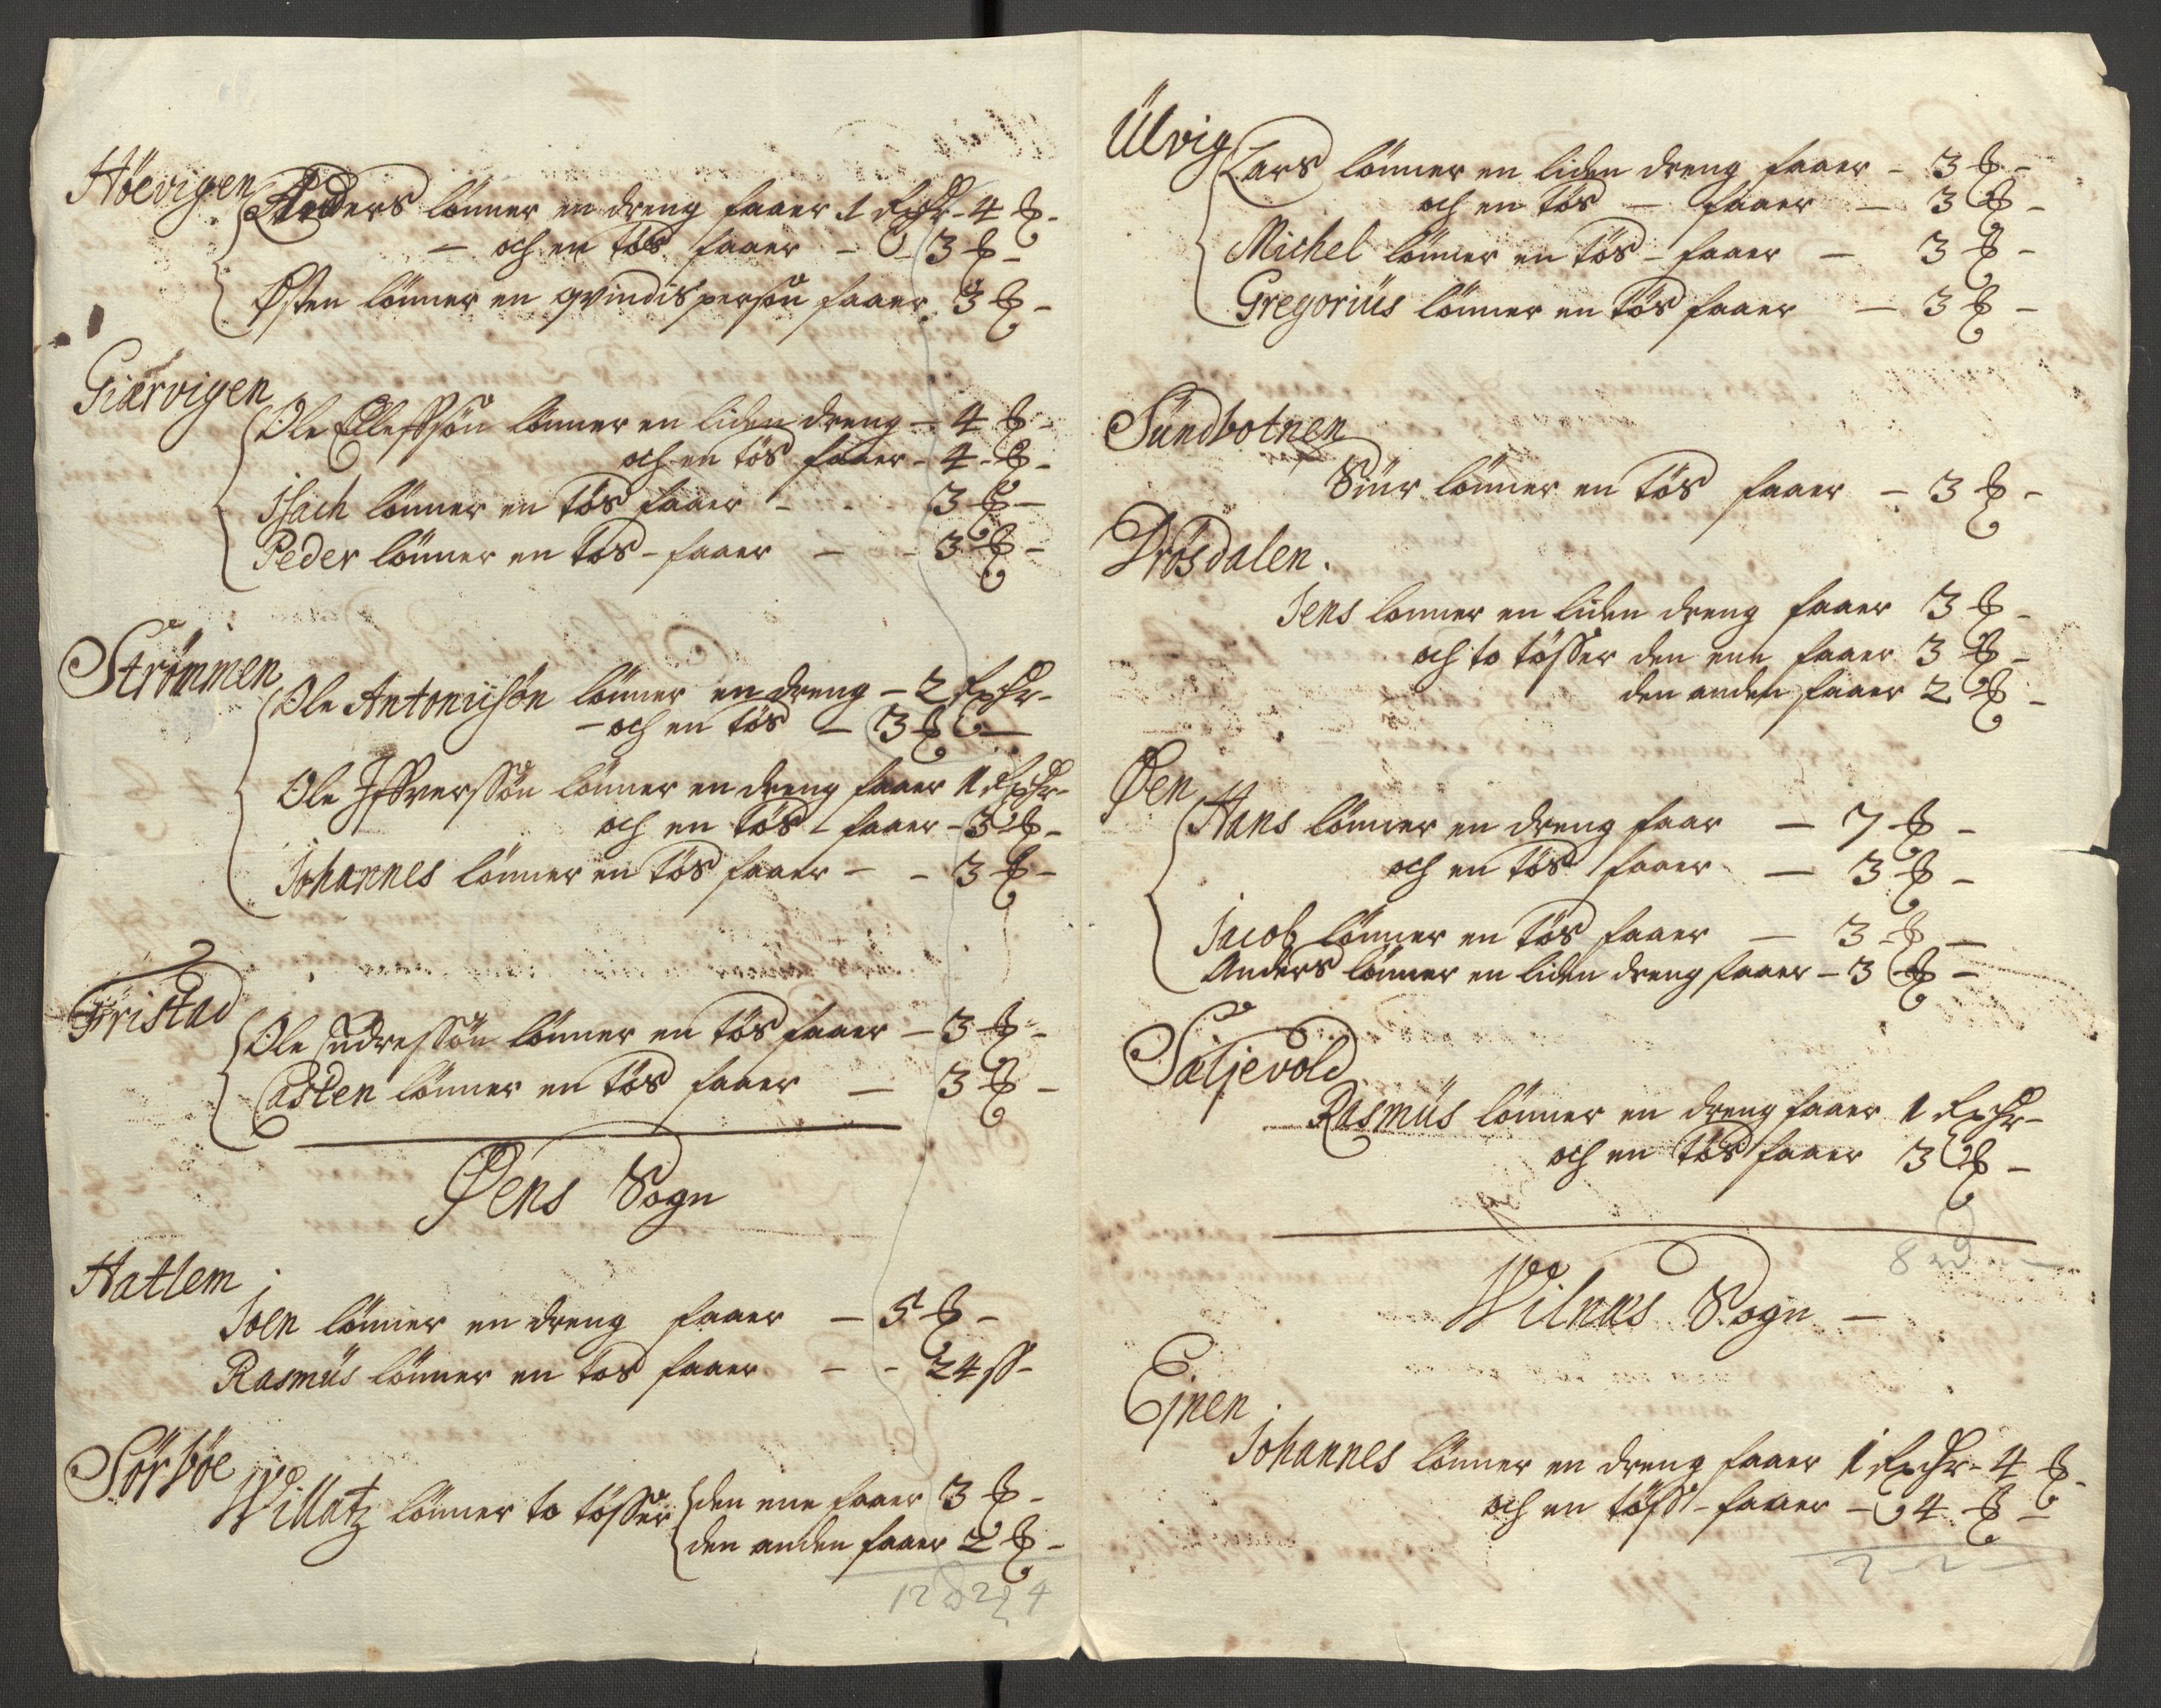 Höevigen
Anders lönner en dreng faaer 1 Rixdr - 4 ℔ -
- och en tös faaer - 3 ℔ -
Østen lönner en qvindisperson faaer 3 ℔ -
Giærvigen
Ole Ellefssön lönner en liden dreng - 4 ℔ -
och en tös faaer - 4 ℔ -
Isach lönner en tös faaer - - 3 ℔ -
Peder lönner en tös - faaer - - 3 ℔ -
Strömmen
Ole Antoniisön lönner en dreng - 2 Rixdr -
- och en tös - 3 ℔ -
Ole Iffverssön lönner en dreng faaer 1 Rixdr -
och en tös - faaer - 3 ℔ -
Johannes lönner en tös faaer - - 3 ℔ -
Fristad
Ole Endressön lönner en tös faaer - 3 ℔ -
Casten lönner en tös faaer - 3 ℔ -
Øens Sogn
Hatlem
Joen lönner en dreng faaer - 5 ℔ -
Rasmüs lönner en tös faaer - - 24 ss -
Sörböe
Willatz lönner to tösser den ene faaer 3 ℔ -
den anden faaer 2 ℔ -
Ülvig
Lars lönner en liden dreng faaer - 3 ℔ -
och en tös - faaer - 3 ℔ -
Michel lönner en tös - faaer - 3 ℔ -
Gregoriüs lönner en tös faaer - 3 ℔ -
Sündbotnen
Siur lönner en tös faaer - 3 ℔ -
Drösdalen.
Jens lonner en liden dreng faaer 3 ℔ -
och to tösser den ene faaer 3 ℔ -
den anden faaer 2 ℔ -
Øen
Hans lönner en dreng faar - 7 ℔ -
och en tös faaer - 3 ℔ -
Jacob lönner en tös faaer - 3 ℔ -
Anders lönner en liden dreng faaer - 3 ℔ -
Sætjevold
Rasmüs lönner en dreng faaer 1 Rixdr -
och en tös faaer 3 ℔ -
Wilnæs Sogn -
Ejnen
Johannes lönner en dreng faaer 1 Rixdr - 4 ℔ -
och en töss - faaer - 4 ℔ -